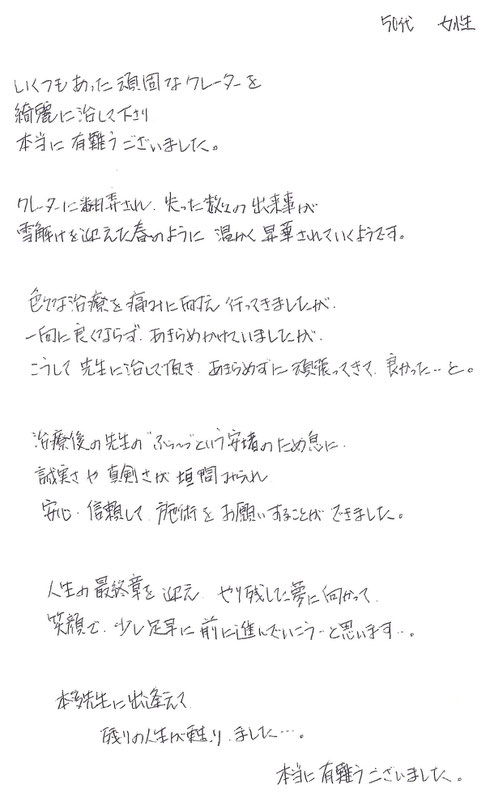 50代 女性
いくつもあった頑固なクレーターを
綺麗に治して下さり
本当に有難うございました。
クレーターに翻弄され、失った数々の出来事が
雪解けを迎えた春のように 温かく昇華されていくようです。
色々な治療を痛みに耐え行ってきましたが、
一向に良くならず、あきらめかけていましたが、
こうして先生に治して頂き、あきらめずに頑張ってきて、良かった…と。
治療後の先生の“ふぅ〜っ”という安堵のため息に、
誠実さや真剣さが垣間みられ
安心・信頼して、施術をお願いすることができました。
人生の最終章を迎え、やり残した夢に向かって、
笑顔で、少し足早に前に進んでいこう…と思います…。
本多先生に出逢えて
残りの人生が甦りました…。
本当に有難うございました。